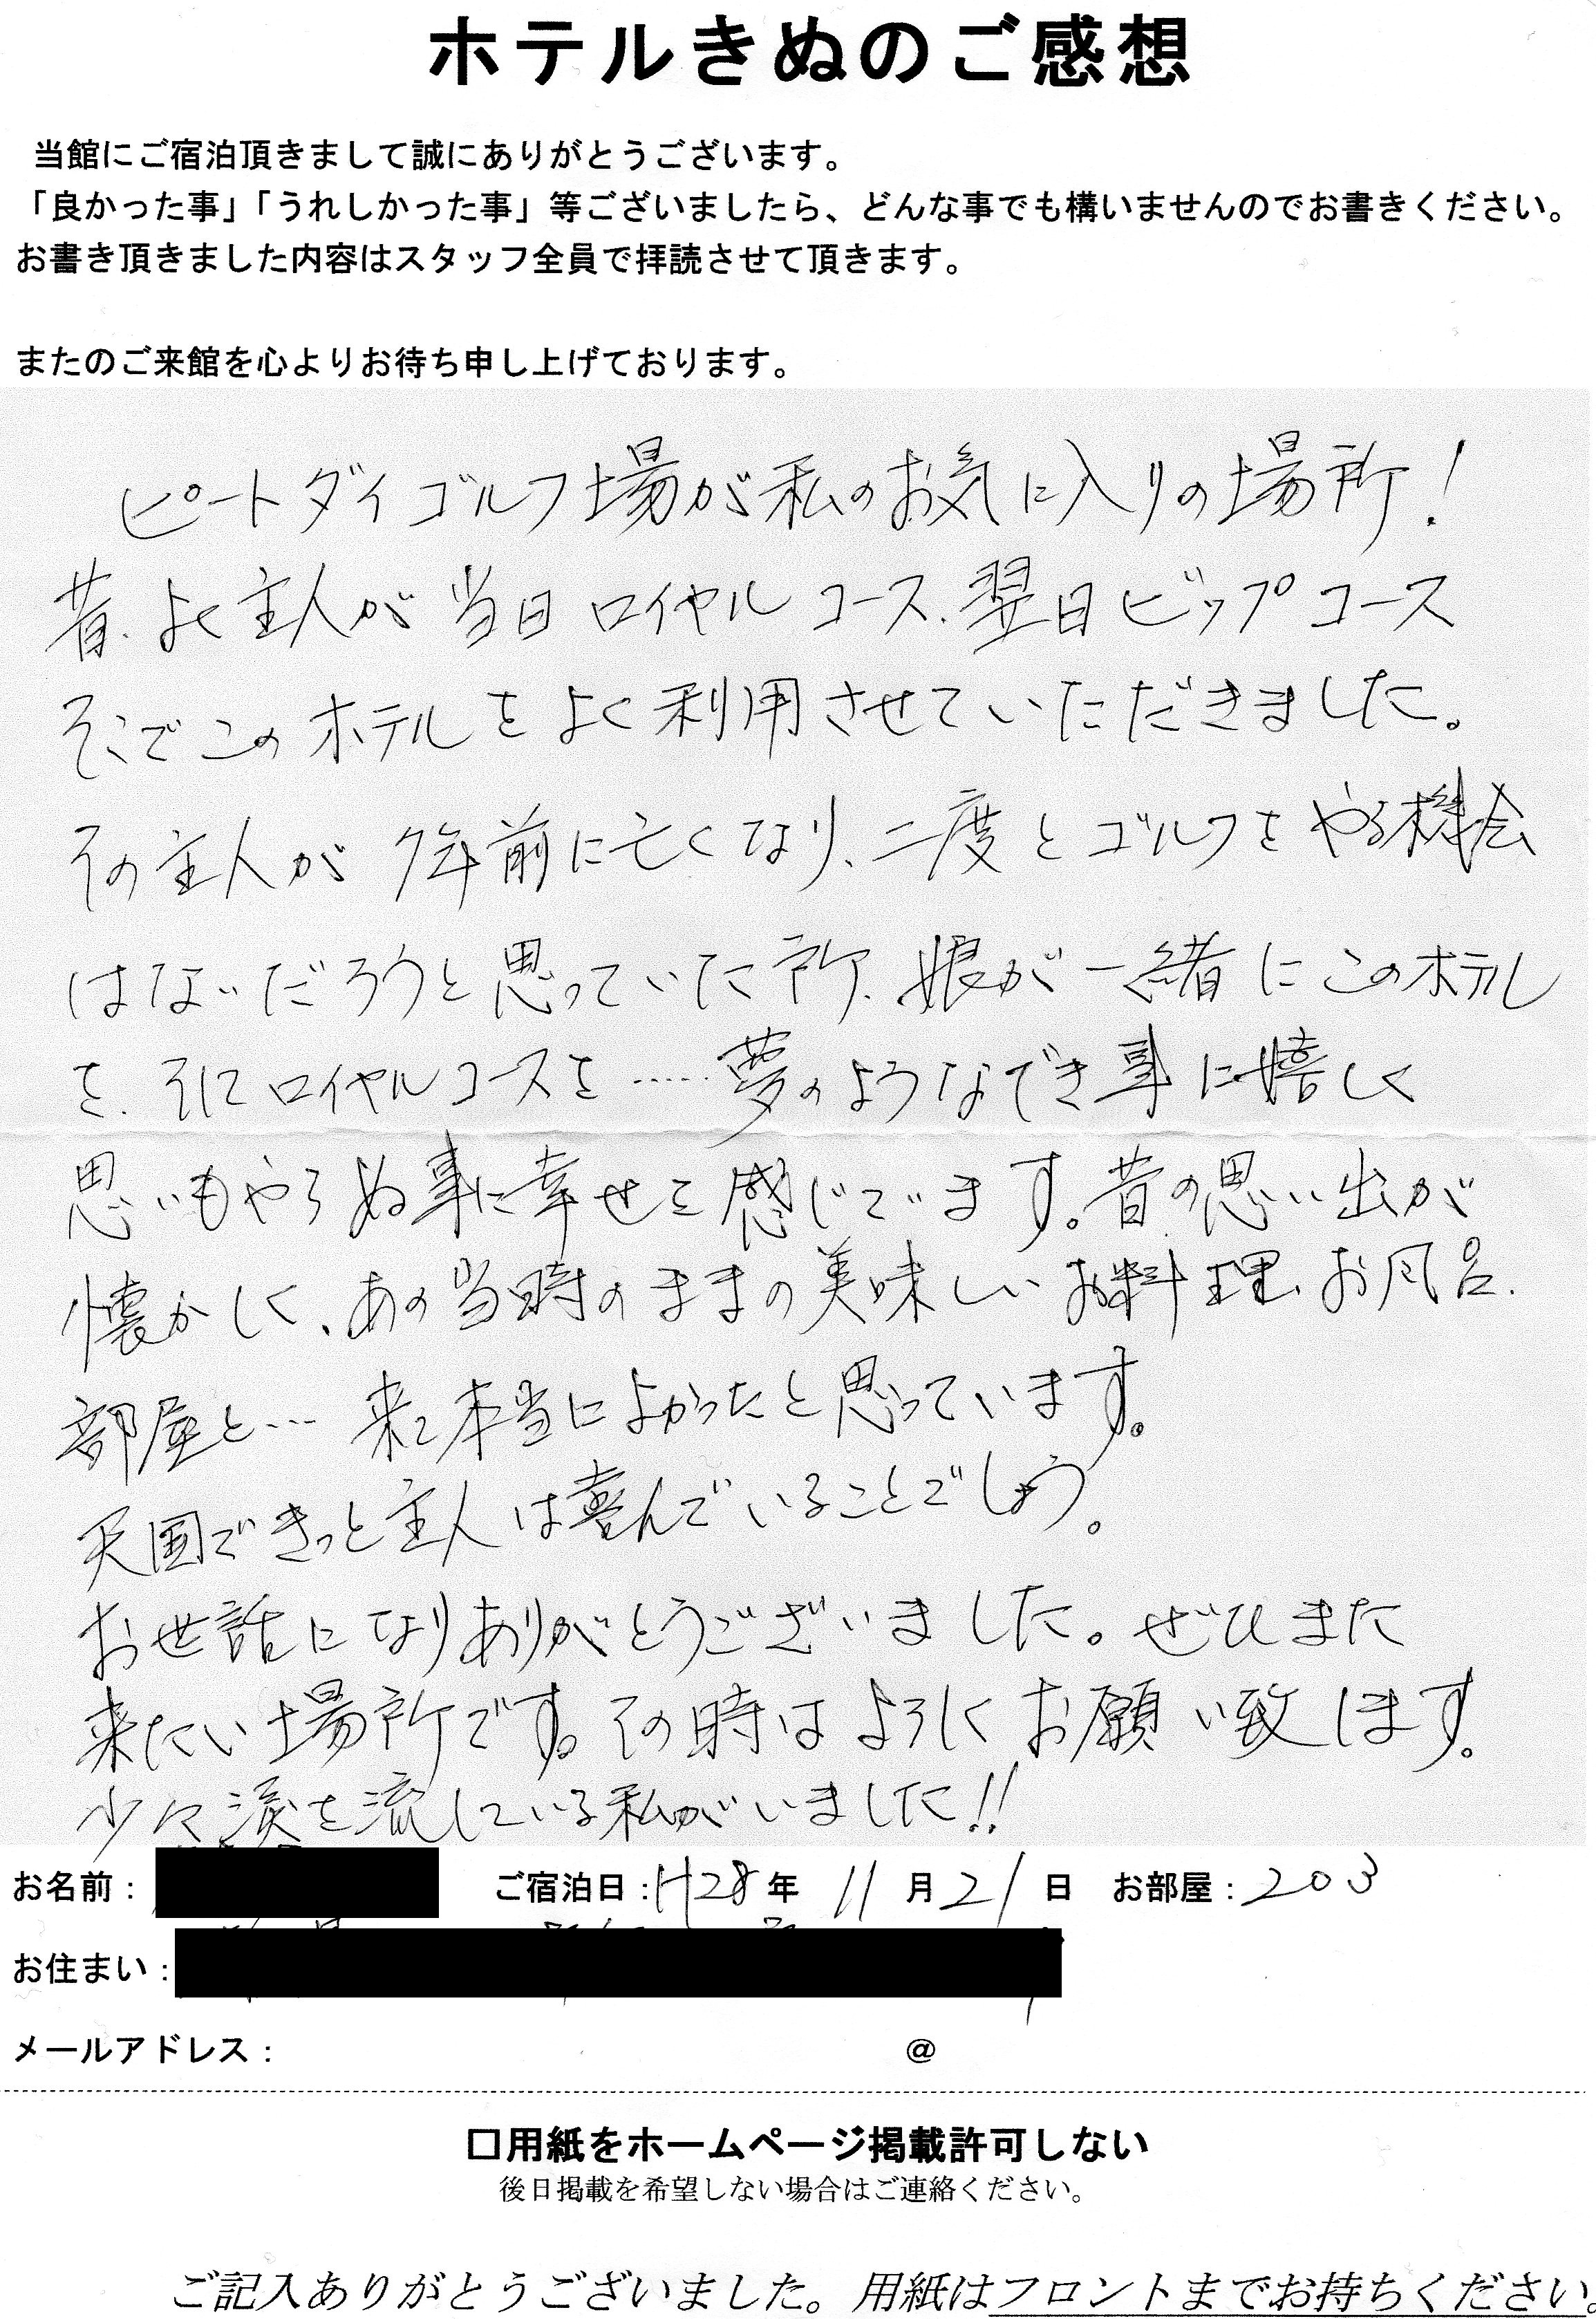 ホテルきぬのご感想
当館にご宿泊頂きまして誠にありがとうございます。
「良かった事」「うれしかった事」等ございましたら、どんな事でも構いませんのでお書きください。
お書き頂きました内容はスタッフ全員で拝読させて頂きます。
またのご来館を心よりお待ち申し上げております。
ピートダイゴルフ場が私のお気に入りの場所!
昔、よく主人が当日ロイヤルコース、翌日ビップコース
そこでこのホテルをよく利用させていただきました。
その主人が7年前に亡くなり、二度とゴルフをやる機会
はないだろうと思っていた所、娘が一緒にこのホテル
を、そしてロイヤルコースを……夢のようなでき事に嬉しく
思いもやらぬ事に幸せを感じてます。昔の思い出が
懐かしく、あの当時のままの美味しいお料理、お風呂、
部屋と… 来て本当によかったと思っています。
天国できっと主人は喜んでいることでしょう。
お世話になりありがとうございました。ぜひまた
来たい場所です。その時はよろしくお願い致します。
少々涙を流している私がいました!!
お名前： ご宿泊日：H28年 11月21日 お部屋：203
お住まい：
メールアドレス： @
□用紙をホームページ掲載許可しない
後日掲載を希望しない場合はご連絡ください。
ご記入ありがとうございました。用紙はフロントまでお持ちください。